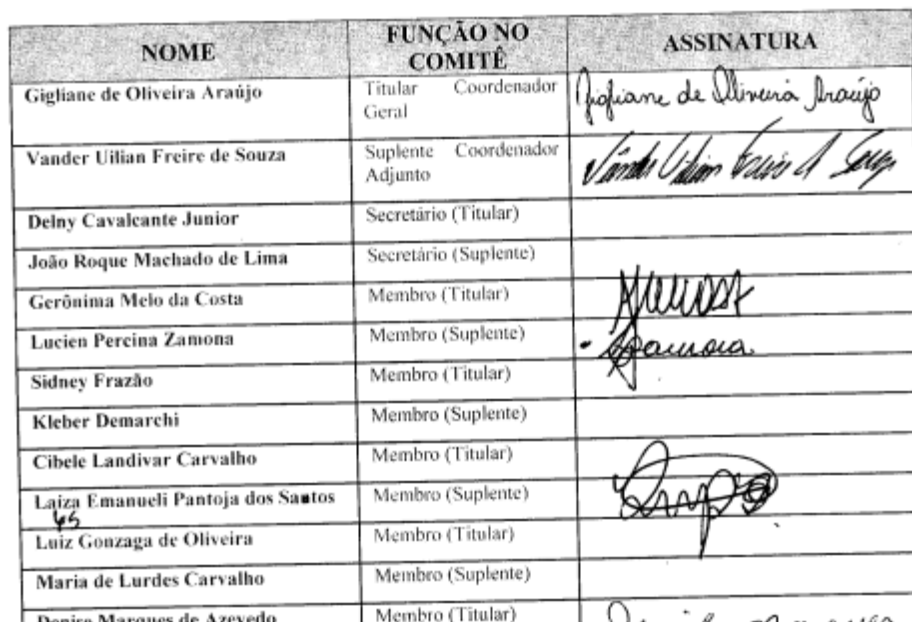 NOME FUNÇÃO NO COMITÊ ASSINATURA
Gigliane de Oliveira Araújo Titular Coordenador Geral Gigliane de Oliveira Araújo
Vander Uilian Freire de Souza Suplente Coordenador Adjunto Vander Uilian Freire de Souza
Delny Cavalcante Junior Secretário (Titular)
João Roque Machado de Lima Secretário (Suplente)
Gerônima Melo da Costa Membro (Titular)
Lucien Percina Zamona Membro (Suplente)
Sidney Frazão Membro (Titular)
Kleber Demarchi Membro (Suplente)
Cibele Landivar Carvalho Membro (Titular)
Laiza Emanueli Pantoja dos Santos Membro (Suplente)
Luiz Gonzaga de Oliveira Membro (Titular)
Maria de Lurdes Carvalho Membro (Suplente)
Denise Marques de Azevedo Membro (Titular)